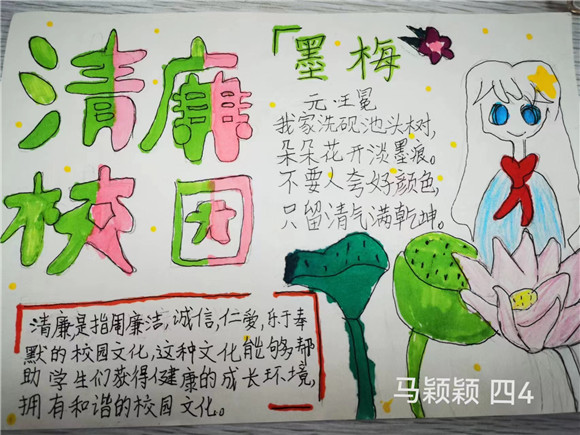 清廉
校园
「墨梅
元·王冕
我家洗砚池头树，
朵朵花开淡墨痕。
不要人夸好颜色，
只留清气满乾坤。
清廉，是指周廉洁，诚信，仁爱，乐于奉
默的校园文化，这种文化能够帮
助学生们获得健康的成长环境，
拥有和谐的校园文化。
马颖颖 四4